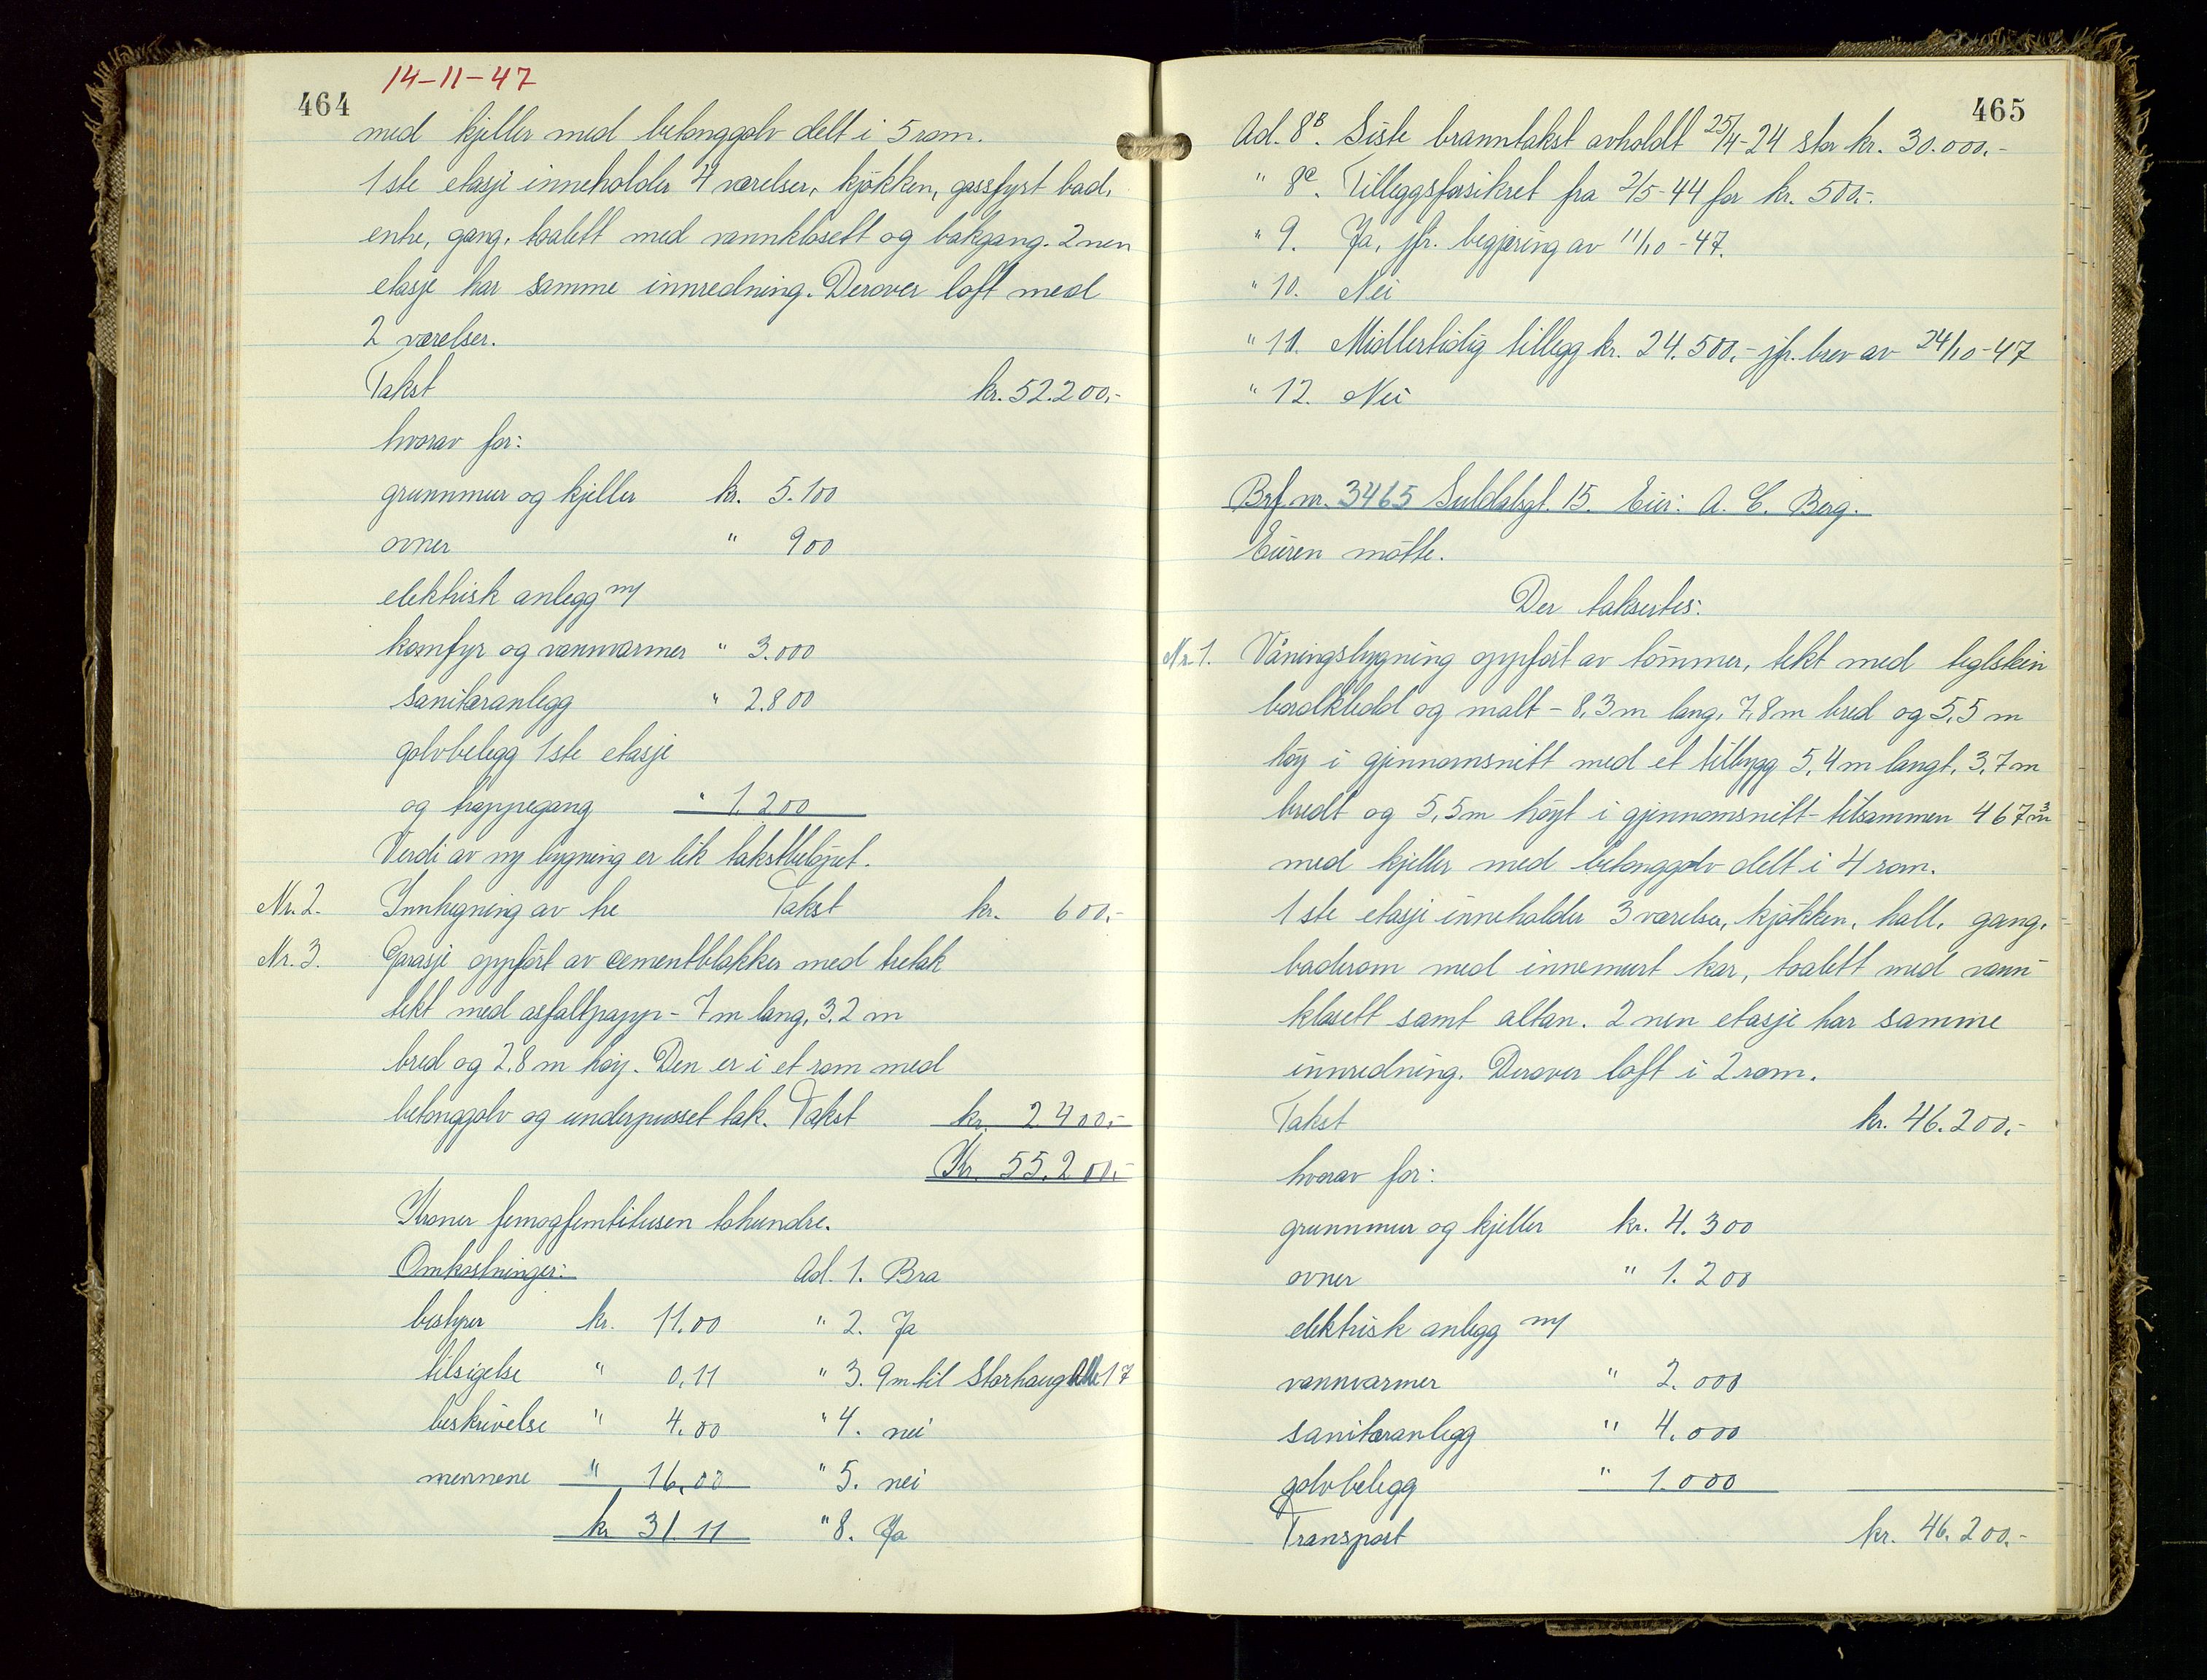 464
14-11-47
med kjeller med betonggolv delt i 5 rom.
1ste etasje inneholder 4 værelser, kjøkken, gassfyrt bad,
entre, gang, toalett med vannklosett og bakgang. 2nen
etasje har samme innredning. Derover loft med
2 værelser.
Takst kr. 52.200,-
hvorav for:
grunnmur og kjeller kr. 5.100
ovner " 900
elektrisk anlegg m/
komfyr og vannvarmer " 3.000
sanitæranlegg " 2.800
golvbelegg 1ste etasje
og trappegang " 1.200
Verdi av ny bygning er lik takstbeløpet.
Nr. 2. Innhegning av tre Takst kr. 600,-
Nr. 3. Garasje oppført av cementblokker med tretak
tekt med asfaltpapp - 7 m lang, 3.2 m
bred og 2.8 m høy. Den er i et rom med
betonggolv og underpusset tak. Takst kr. 2.400,-
Kr. 55.200,-
Kroner femogfemtitusen tohundre.
Omkostninger: Ad. 1. Bra
bestyrer kr. 11.00 " 2. Ja
tilsigelse " 0,11 " 3. 9 m til Storhaug 17
beskrivelse " 4.00 " 4. nei
mennene " 16,00 " 5. nei
kr 31.11 " 8. Ja
465
Ad. 8B. Siste branntakst avholdt 25/4-24 stor kr. 30.000,-
" 8C. Tilleggsforsikret fra 2/5-44 for kr. 500,-.
" 9. Ja, jfr. begjæring av 11/10-47.
" 10. Nei
" 11. Midlertidig tillegg kr. 24.500,- jfr. brev av 24/10-47
" 12. Nei
Brf. nr. 3465 Suldalsgt. 15. Eier: A. C. Berg.
Eieren møtte.
Der taksertes:
Nr. 1. Våningsbygning oppført av tømmer, tekt med teglstein
bordkledd og malt - 8,3 m lang, 7,8 m bred og 5,5 m
høy i gjennomsnitt med et tilbygg 5,4 m langt, 3,7 m
bredt og 5,5 m høyt i gjennomsnitt - tilsammen 467 m3
med kjeller med betonggolv delt i 4 rom.
1ste etasje inneholder 3 værelser, kjøkken, hall, gang,
baderom med innemurt kar, toalett med vann-
klosett samt altan. 2nen etasje har samme
innredning. Derover loft i 2 rom.
Takst kr. 46.200,-
hvorav for:
grunnmur og kjeller kr. 4.300
ovner " 1.200
elektrisk anlegg m/
vannvarmer " 2.000
sanitæranlegg " 4.000
golvbelegg " 1.000
Transport kr. 46.200,-